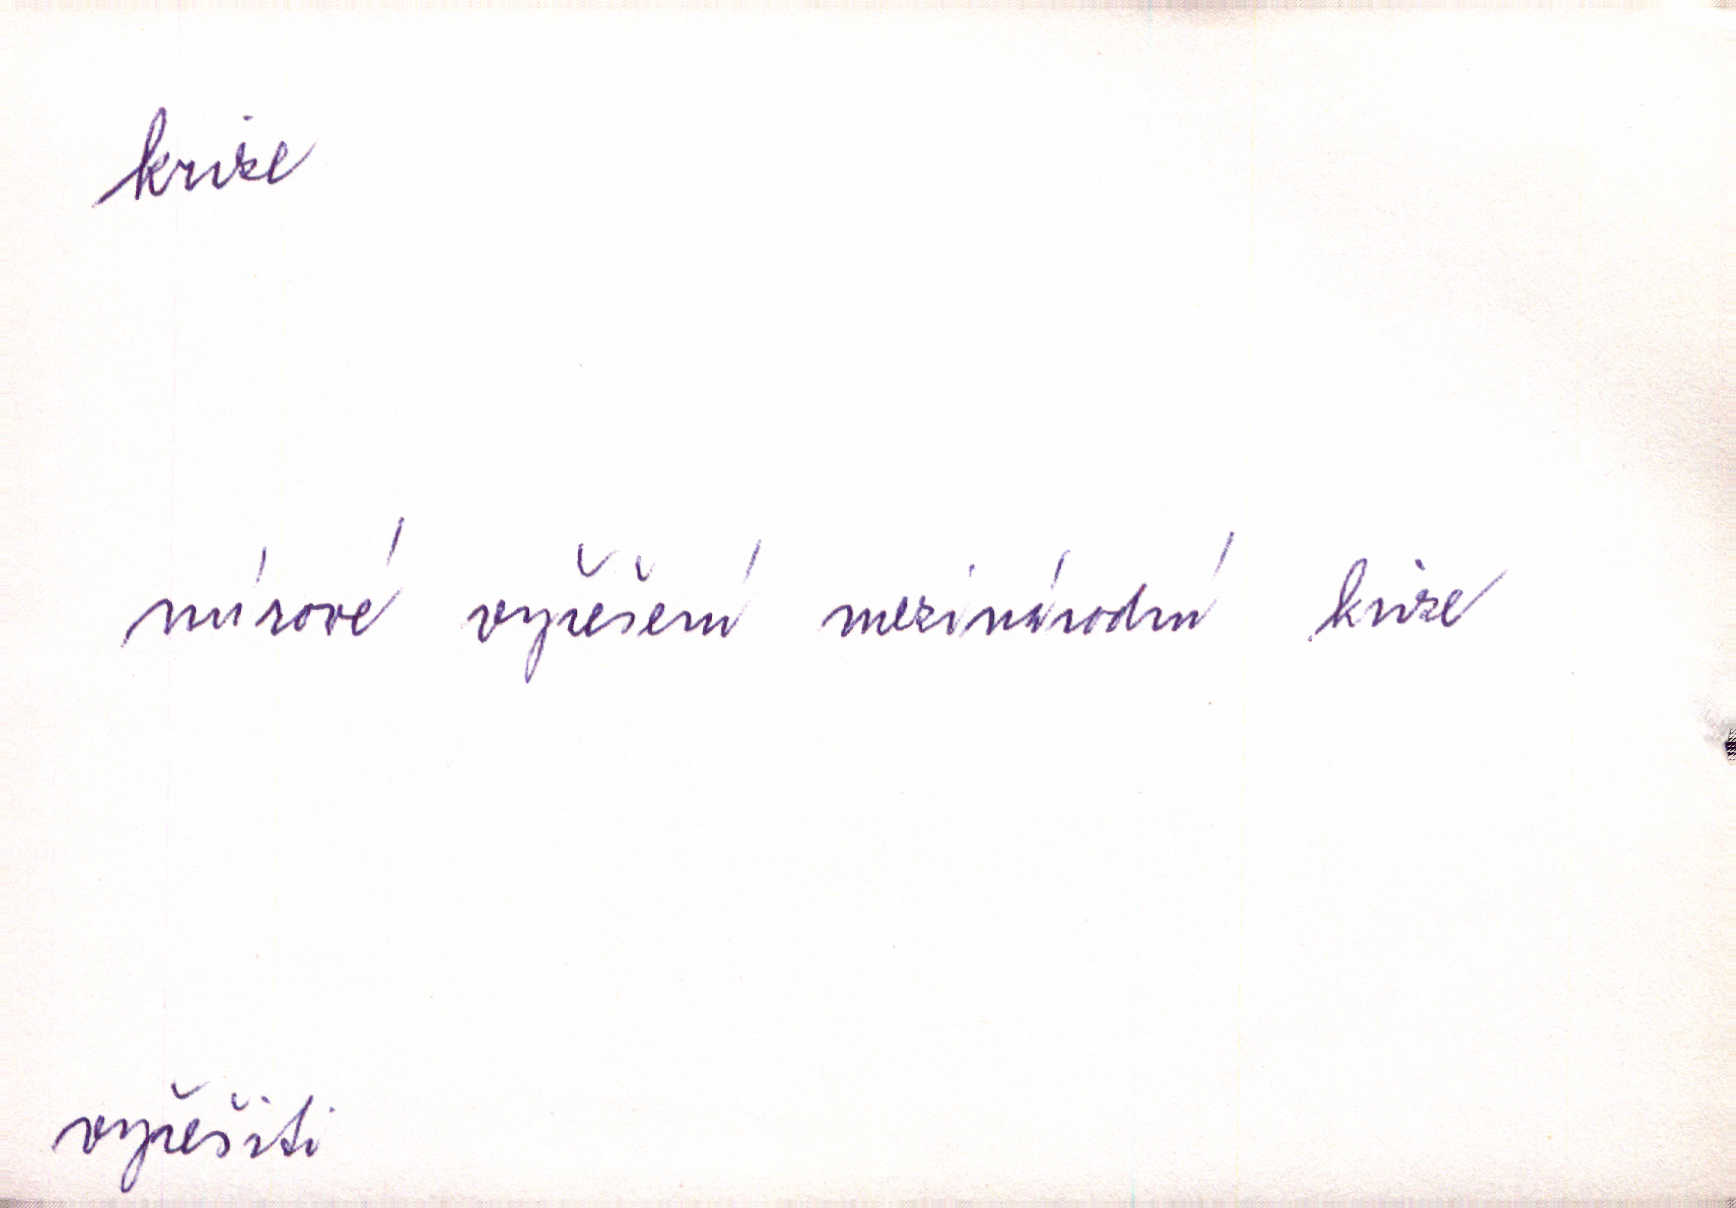 krise
mírové vyřešení mezinárodní krise
vyřešiti